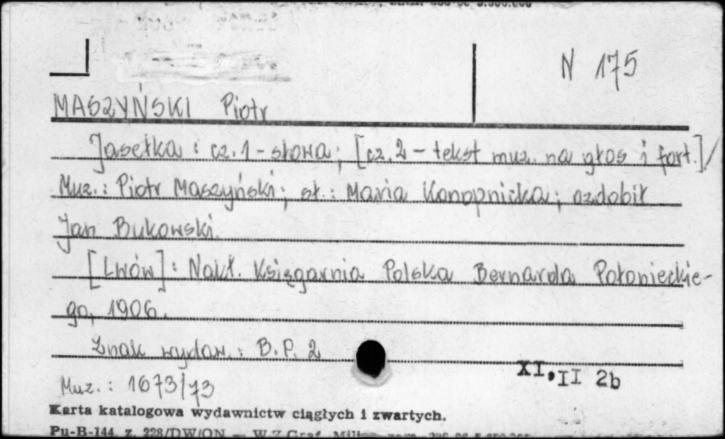 N 175
MASZYŃSKI Piotr
Jasełka : cz. 1 - słowa ; [cz. 2 - tekst muz. na głos i fort.] /
Muz. : Piotr Maszyński ; sł. : Maria Konopnicka ; ozdobił
Jan Bukowski.
[Lwów] : Nakł. Księgarnia Polska Bernarda Połonieckie-
go, 1906.
Znak wydaw. : B.P. 2
XI,II 2b
Muz. : 1673/73
Karta katalogowa wydawnictw ciągłych i zwartych.
Pu-B-144, z. 228/DW/ON — W.Z.Graf.